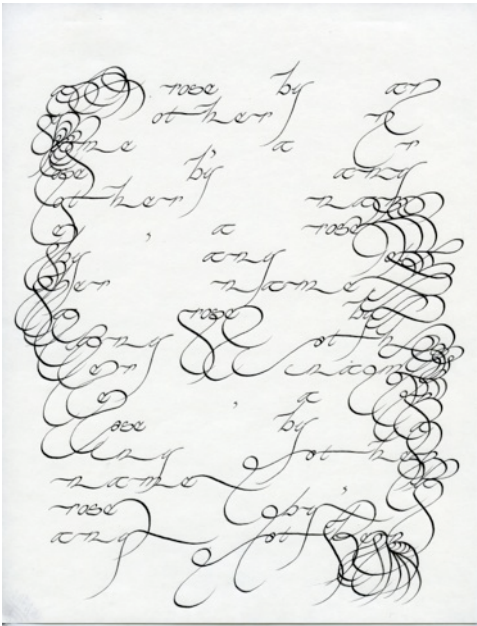 a rose by an
other n
ame , a r
ose by any
other nam
e , a rose
by any ot
her name
a rose by
any oth
er nam
e , a r
ose by a
ny other
name ,
rose by
any other